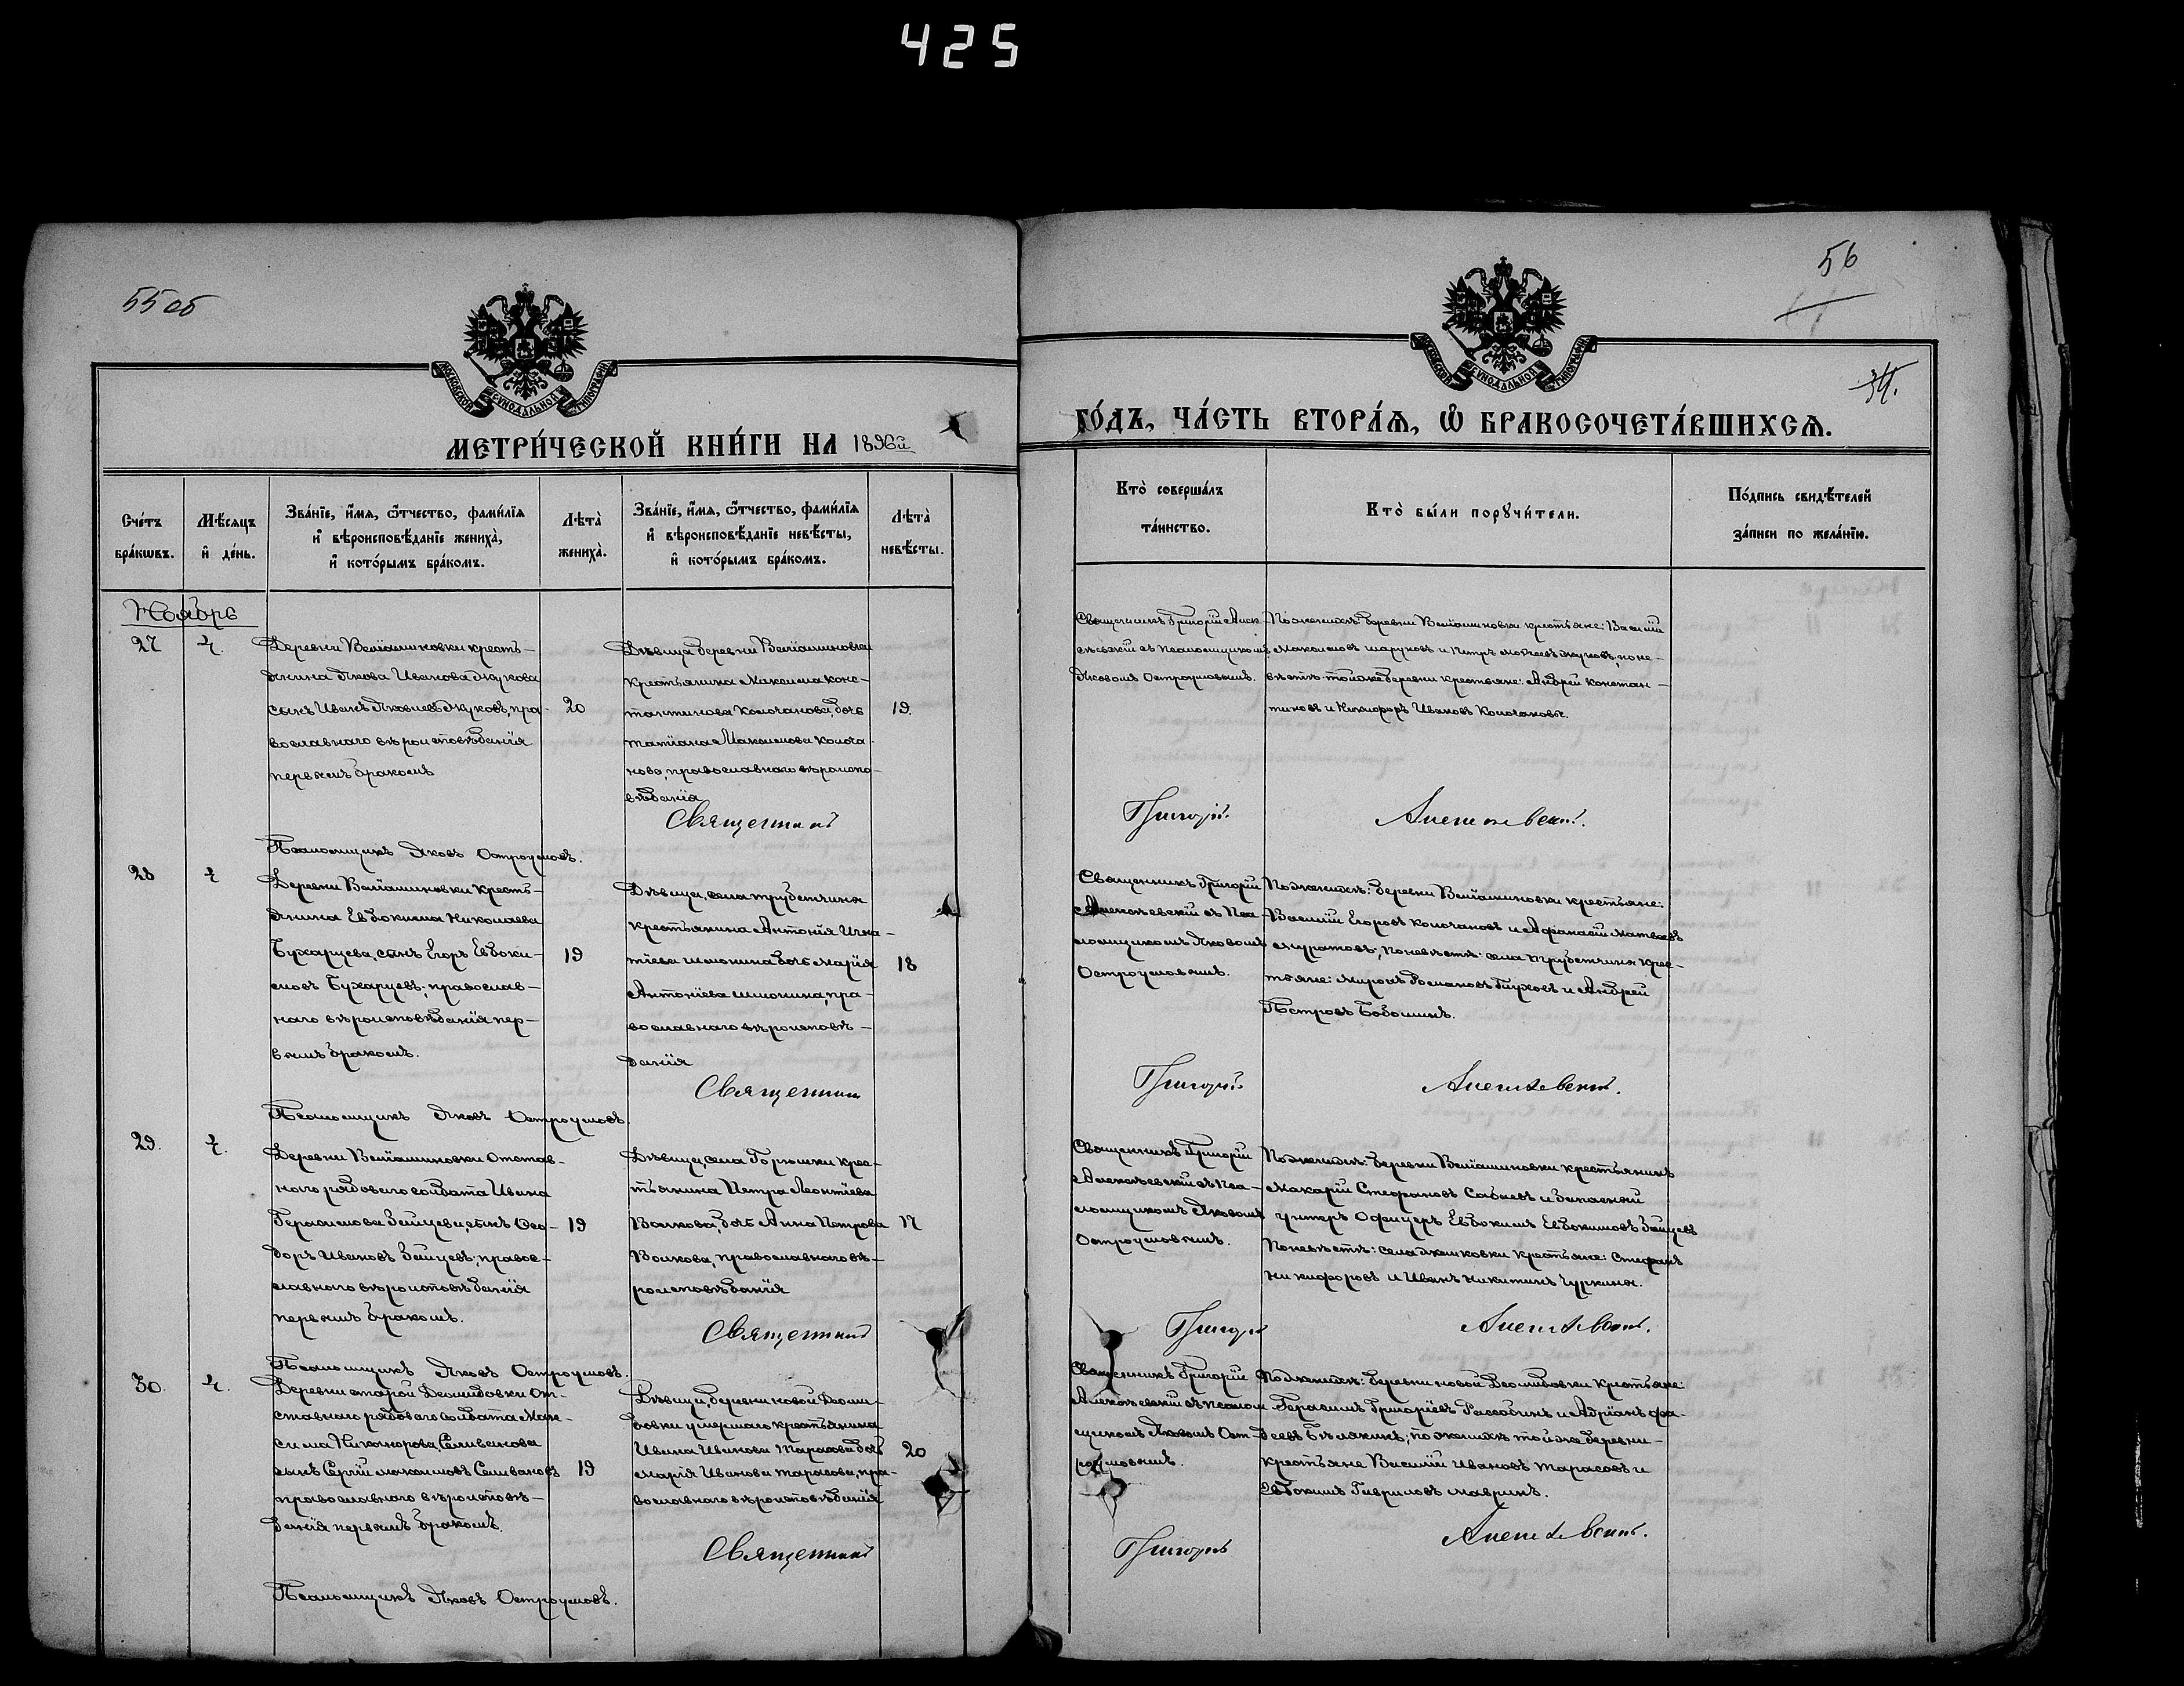 425
55 об
56
34.
МОСКОВСКОЙ СѴНОДАЛЬНОЙ ТИПОГРАФІИ
МОСКОВСКОЙ СѴНОДАЛЬНОЙ ТИПОГРАФІИ
МЕТРИ́ЧЕСКОЙ КНИ́ГИ НА 1896й
ГО́ДЪ, ЧА́СТЬ ВТОРА́Ѧ, Ѽ БРАКОСОЧЕТА́ВШИХСѦ.
Сче́тъ бра́кѡвъ.
Мѣ́сяцъ и҆ де́нь.
Зва́нїе, и҆́мѧ, ѻ҆́тчество, фами́лїѧ
и҆ вѣроисповѣ́данїе жениха̀,
и҆ кото́рымъ бра́комъ.
Лѣта̀ жениха̀.
Зва́нїе, и҆́мѧ, ѻ҆́тчество, фами́лїѧ
и҆ вѣроисповѣ́данїе невѣ́сты,
и҆ кото́рымъ бра́комъ.
Лѣта̀ невѣ́сты.
Кто̀ соверша́лъ
та́инство.
Кто̀ бы́ли порꙋчи́тели.
По́дпись свидѣ́телей
за́писи по жела́нїю.
Ноябрь
27
4.
Деревни Веніаминовки кресть-
янина Якова Иванова Жукова
сынъ Иванъ Яковлевъ Жуковъ, пра-
вославнаго вѣроисповѣданія
первымъ бракомъ
20
Дѣвица деревни Веніаминовки
крестьянина Максима Конс-
тантинова Колочанова, дочь
Татіана Максимова Колоча-
нова, православнаго вѣроиспо-
вѣданія
19.
Священникъ Григорій
съ псаломщикомъ
Яковомъ Остроумовымъ.
По женихѣ: деревни Веніаминовки крестьяне: Василій
Максимовъ Шаруновъ и Петръ Моѵсеевъ Жуковъ; по не-
вѣстѣ: той же деревни крестьяне: Андрей Констан-
тиновъ и Никифоръ Ивановъ Колочановы.
Священникъ
Григорій
Псаломщикъ Яковъ Остроумовъ.
28
4
Деревни Веніаминовки кресть-
янина Евдокима Николаева
Бухарцева, сынъ Егоръ Евдоки-
мовъ Бухарцевъ, православ-
наго вѣроисповѣданія пер-
вымъ бракомъ.
19
Дѣвица, села Трубетчина
крестьянина Антонія Игна-
тіева Шмонина дочь Марія
Антоніева Шмонина, пра-
вославнаго вѣроисповѣ-
данія
18
Священникъ Григорій
съ пса-
ломщикомъ Яковомъ
Остроумовымъ.
По женихѣ: деревни Веніаминовки крестьяне:
Василій Егоровъ Колочановъ и Афанасій Матвеевъ
Муратовъ; по невѣстѣ: села Трубетчина крес-
тьяне: Миронъ Романовъ Глуховъ и Андрей
Петровъ Бобошинъ.
Священникъ
Григорій
Псаломщикъ Яковъ Остроумовъ.
29.
4.
Деревни Веніаминовки отстав-
ного рядового солдата Ивана
Герасимова Зайцева, сынъ Ѳео-
доръ Ивановъ Зайцевъ, правос-
лавнаго вѣроисповѣданія
первымъ бракомъ.
19
Дѣвица, села Горюшки крес-
тьянина Петра Леонтіева
Волкова, дочь Анна Петрова
Волкова, православнаго вѣ-
роисповѣданія
17
Священникъ Григорій
съ пса-
ломщикомъ Яковомъ
Остроумовымъ.
По женихѣ: деревни Веніаминовки крестьянинъ
Макарій Стефановъ и запасный
унтеръ офицеръ Евдокимъ Евдокимовъ Зайцевъ
По невѣстѣ: села крестьяне: Стефанъ
Никифоровъ и Иванъ Никитинъ Чуркины.
Священникъ
Григорій
Псаломщикъ Яковъ Остроумовъ.
30.
4.
Деревни старой Демидовки от-
ставнаго рядового солдата Мак-
сима Никанорова Селиванова
сынъ Сергій Максимовъ Селивановъ
православнаго вѣроисповѣ-
данія первымъ бракомъ.
19
Дѣвица, деревни новой Деми-
довки умершаго крестьянина
Ивана Иванова Тарасова дочь
Марія Иванова Тарасова, пра-
вославнаго вѣроисповѣданія
20
Священникъ Григорій
съ псалом-
щикомъ Яковомъ Ост-
роумовымъ.
По женихѣ: деревни новой Демидовки крестьяне:
Герасимъ Григоріевъ и Адріанъ Фа-
деевъ Бѣлякинъ; по женихѣ той же деревни
крестьяне Василій Ивановъ Тарасовъ и
Евдокимъ Гавриловъ Мавринъ.
Священникъ
Григорій
Псаломщикъ Яковъ Остроумовъ.